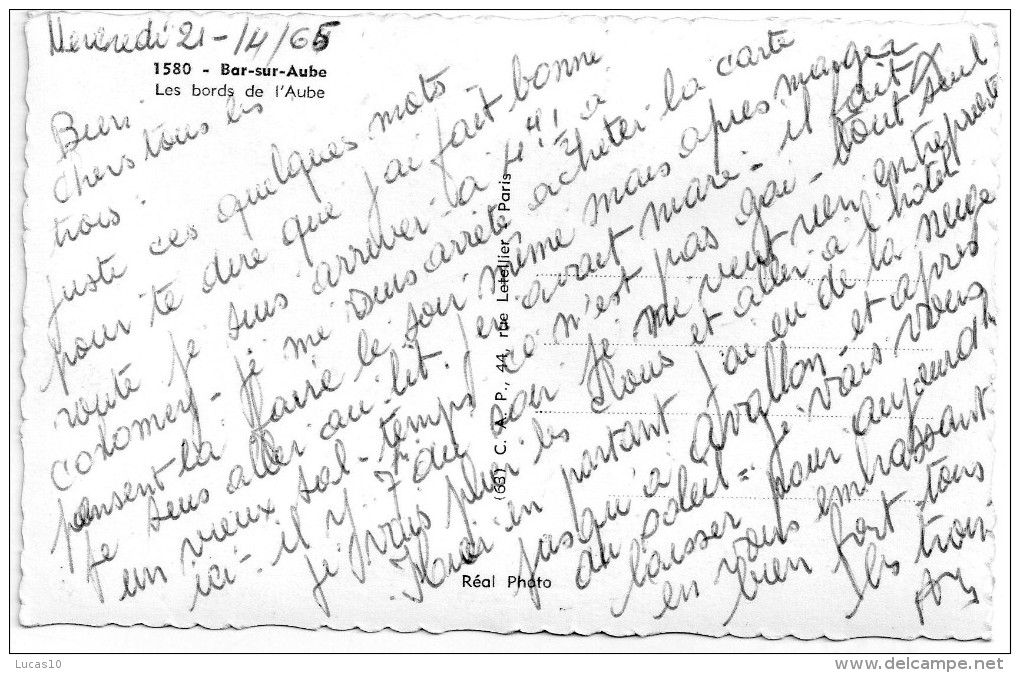 Mercredi 21-/4/65
1580 - Bar-sur-Aube
Les bords de l'Aube
Bien
chers tous les
trois.
juste ces quelques mots
pour te dire que j'ai fait bonne
route je suis arriver à 4 H 1/2 a
colomey - je me suis arrêté acheter la carte
pensent la faire le soir même mais apres manger
je suis aller au lit. j'en avait mare - il fait
un vieux sal - temps ce n'est pas gai - tout seul
ici - il y 7 du soir je me veut rien entreprendre
je vais plier les et aller a l'hotel
en partant j'ai eu de la neige
jusqu'a avallon - et apres
du soleil = je vais vous
laisser pour aujourd'h
en vous embrassant
bien fort tous
les trois
(63) C. A. P., 44, rue Letellier - Paris
Réal Photo
Lucas10
www.delcampe.net